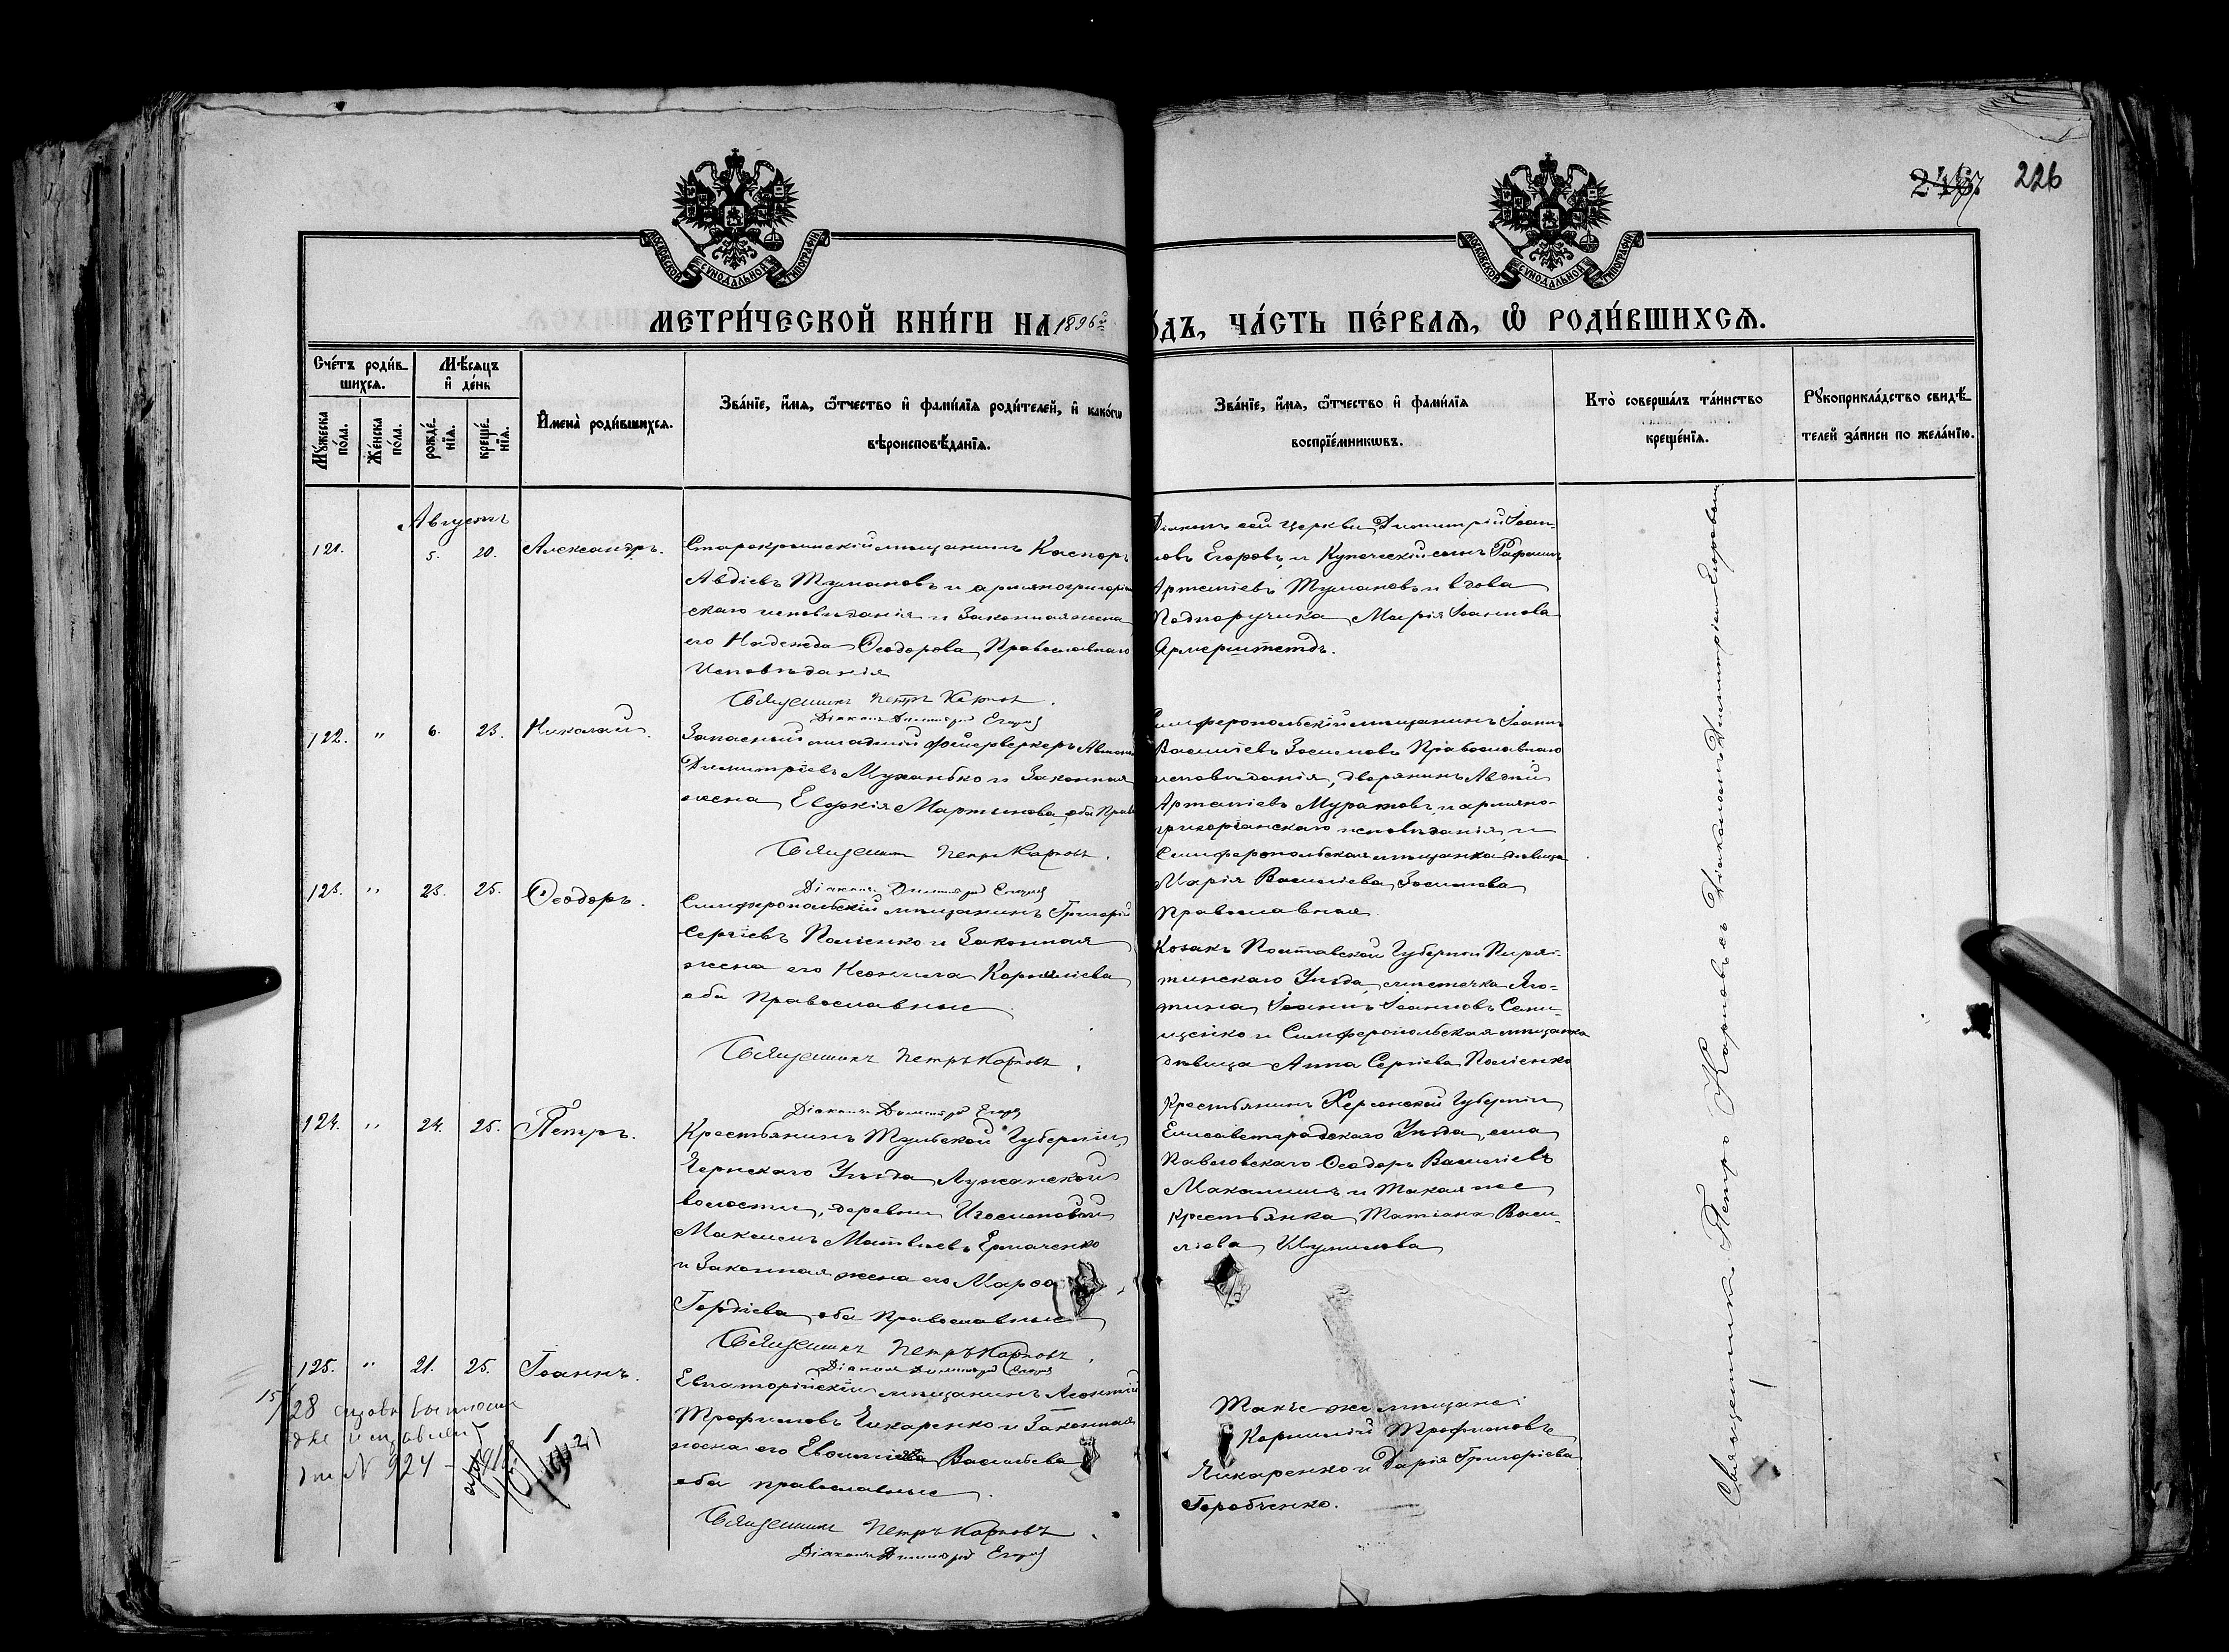 246
226
МОСКОВСКОЙ СУНОДАЛЬНОЙ ТИПОГРАФІИ
МОСКОВСКОЙ СУНОДАЛЬНОЙ ТИПОГРАФІИ
МЕТРИ́ЧЕСКОЙ КНИ́ГИ НА 1896й
О́ДЪ, ЧА́СТЬ ПЕ́РВАЯ, Ѡ РОДИ́ВШИХСЯ.
Сче́тъ роди́в-
шихся.
Мꙋ́жеска по́ла.
Же́нска по́ла.
Мѣ́сяцъ
и҆ де́нь
рожде́-
нїя.
креще́-
нїя.
И҆мена̀ роди́вшихся.
Зва́нїе, и҆́мя, ѻ҆́тчество и҆ фами́лїя роди́телей, и҆ како́гѡ
вѣроисповѣ́данїя.
Зва́нїе, и҆́мя, ѻ҆́тчество и҆ фами́лїя
воспрїе́мникѡвъ.
Кто̀ соверша́лъ та́инство
креще́нїя.
Рꙋкоприкла́дство свидѣ́-
телей за́писи по жела́нїю.
Августъ
121. 5. 20. Александръ.
Старокрымскій мѣщанинъ Каспоръ
Авдіевъ Тумановъ и армяногригоріан
скаго исповѣданія и Законная жена
его Надежда Ѳеодорова, Православнаго
Исповѣданія
Священникъ Петръ Карповъ.
Діаконъ Димитрій Егоровъ
Діаконъ сей церкви Димитрій Іоан-
новъ Егоровъ, и Купеческій сынъ Рафаилъ
Артеміевъ Тумановъ и вдова
Подпоручика Марія Іоаннова
Армерштетдъ.
122. " 6. 23. Николай.
Запасный младшій фейерверкеръ
Димитріевъ Муханько и Законная
жена Евдокія Мартынова, оба Прав
Священникъ Петръ Карповъ.
Діаконъ Димитрій Егоровъ
Симферопольскій мѣщанинъ Іоаннъ
Василіевъ Зосимовъ Православнаго
исповѣданія, дворянинъ Авдій
Артеміевъ Муратовъ, и армяно-
григоріанскаго исповѣданія, и
Симферопольская мѣщанка дѣвица
Марія Василіева Зосимова
Православная.
123. " 23. 25. Ѳеодоръ.
Симферопольскій мѣщанинъ Григорій
Сергіевъ Поліенко и Законная
жена его Неонила Корниліева
оба Православные
Священникъ Петръ Карповъ.
Діаконъ Димитрій Егоровъ
Козакъ Полтавской Губерніи Пиря-
тинскаго Уѣзда, мѣстечка Яго-
тина Іоаннъ Іоанновъ Семи-
щенко и Симферопольская мѣщанка
дѣвица Анна Сергіева Поліенко
124. " 24. 25. Петръ.
Крестьянинъ Тульской Губерніи,
Чернскаго Уѣзда Лужанской
волости, деревни
Максимъ Матвѣевъ Ермаченко
и Законная жена его Марѳа
Гордіева, оба Православные
Священникъ Петръ Карповъ.
Діаконъ Димитрій Егоровъ
Крестьянинъ Херсонской Губерніи
Елисаветградскаго Уѣзда, села
Павловскаго Ѳеодоръ Василіевъ
Макалишъ и такая же
крестьянка Татіана Васи-
ліева Шумилова
125. " 21. 25. Іоаннъ.
Евпаторійскій мѣщанинъ Леонтій
Трофимовъ Чикаренко и Законная
жена его Евѳимія Васильева
оба православные.
Священникъ Петръ Карповъ.
Діаконъ Димитрій Егоровъ
Такіе же мѣщане:
Корнилій Трофимовъ
Чикаренко и Дарія Григоріева
Горобченко.
15/28
№ 924
Священникъ Петръ Карповъ съ Діакономъ Димитріемъ Егоровымъ